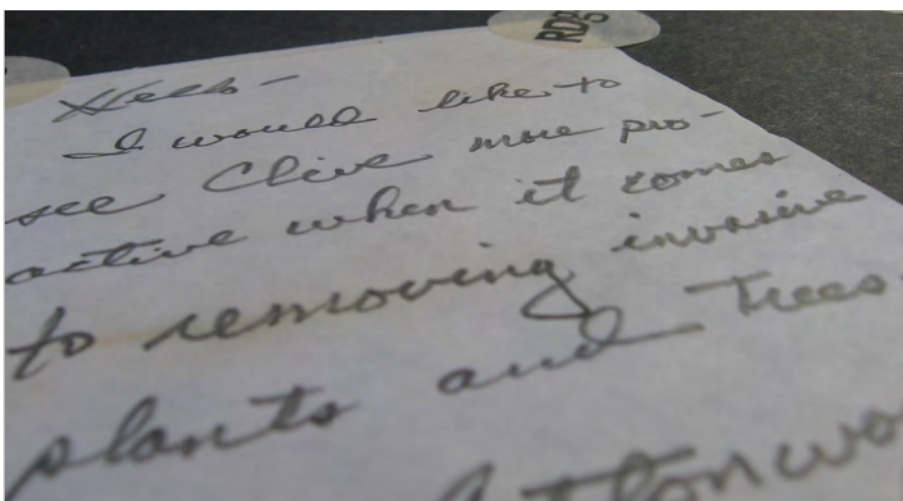 Hello -
I would like to
see Clive more pro-
active when it comes
to removing invasive
plants and Trees.